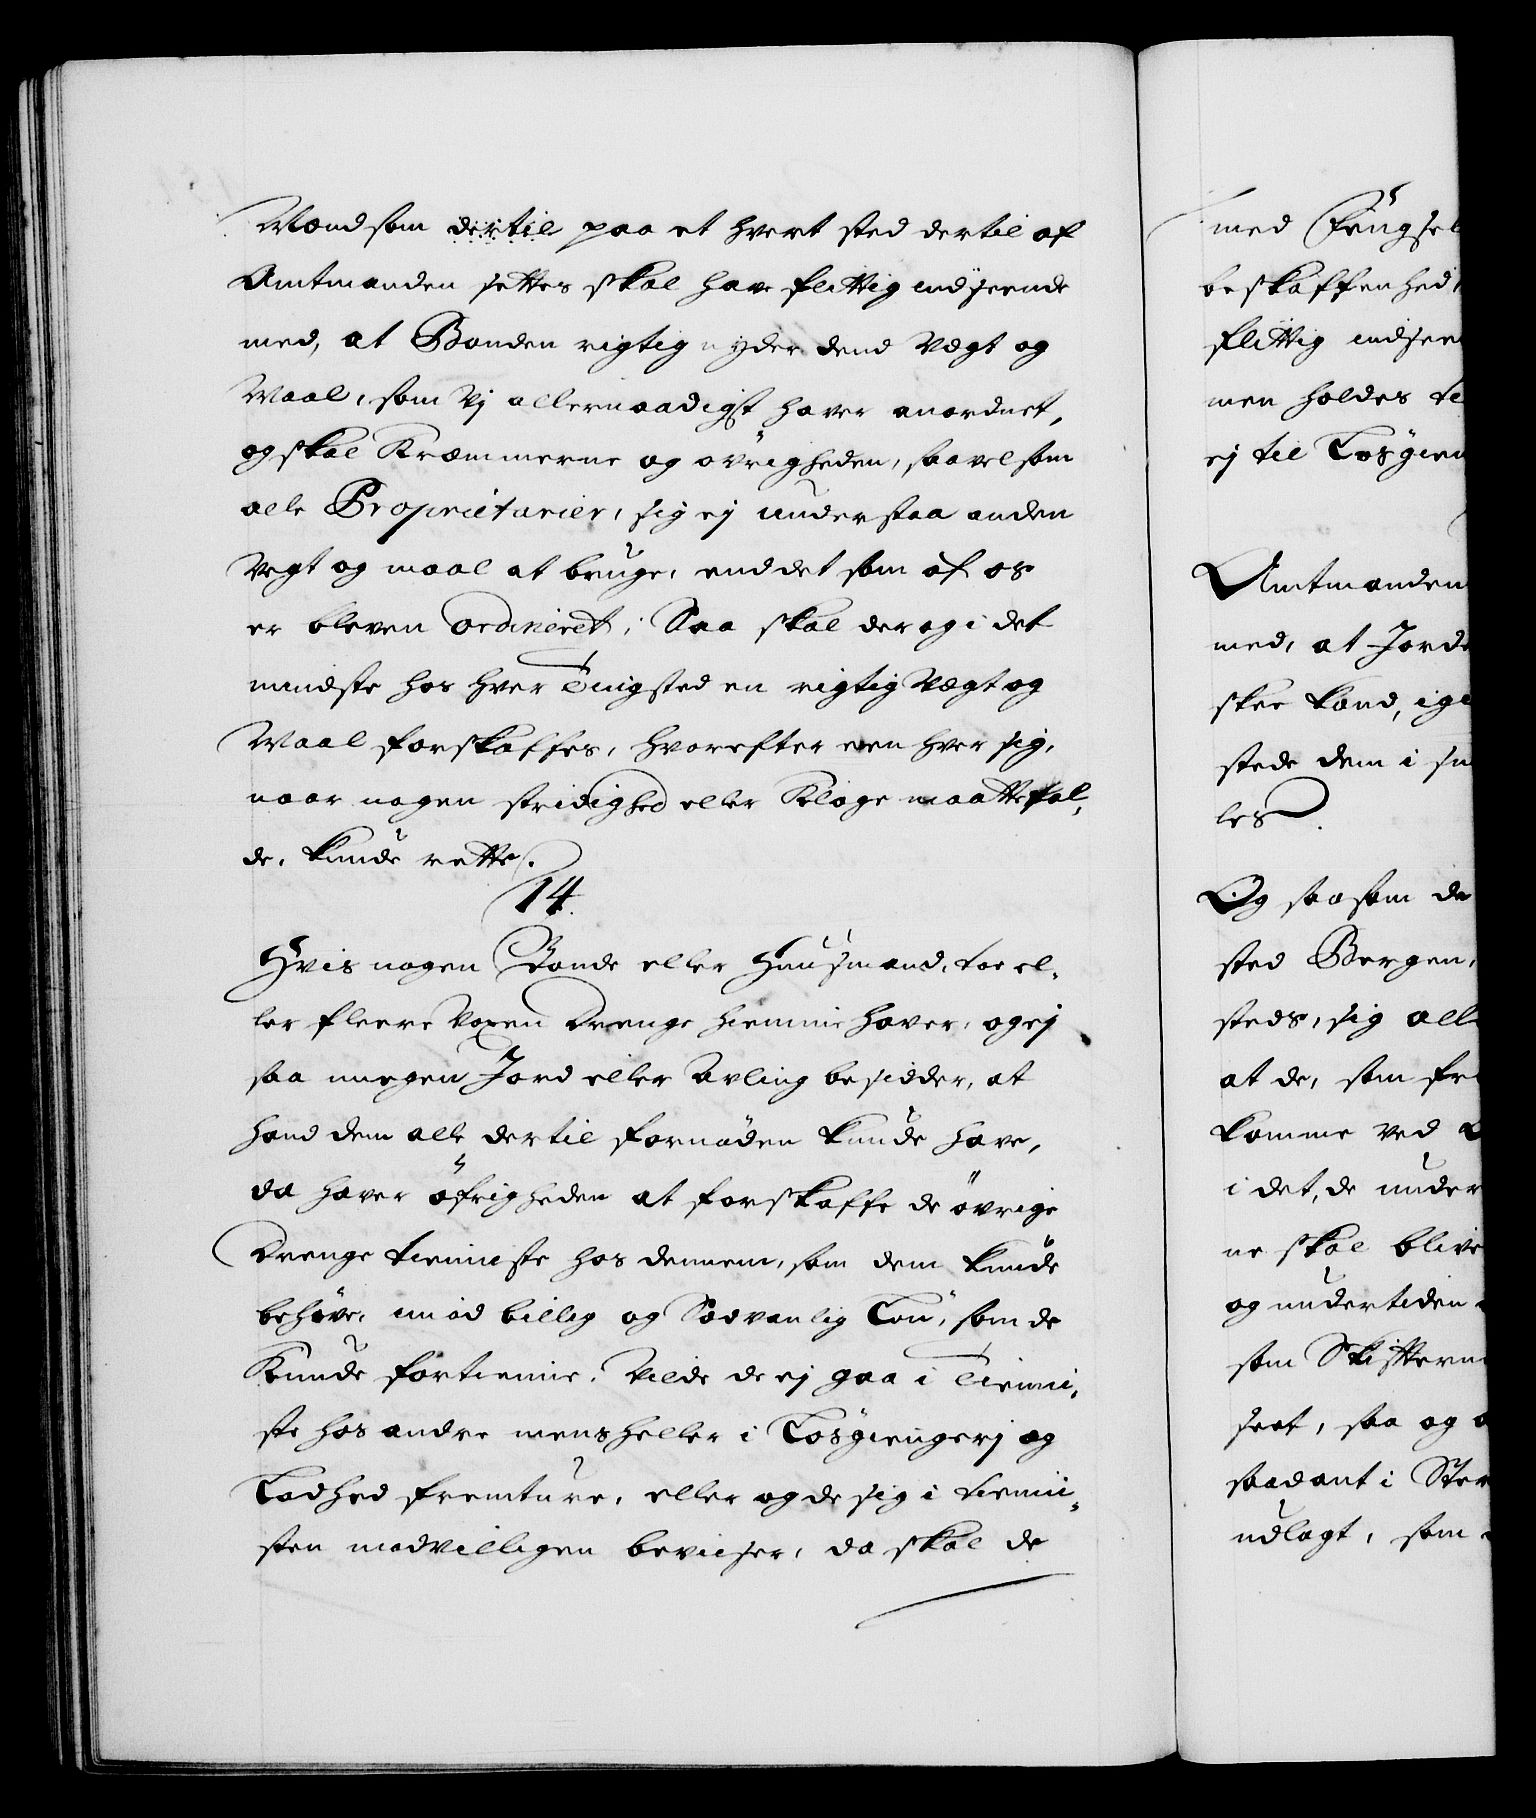 Mænd som dertil paa et hvert sted dertil af
Amtmanden settes skal have flittig indseende
med, at Bonden rigtig nyder dend Vegt og
Maal, som Vj allernaadigst haver anordnet,
og skal Kræmmerne og øvrigheden, saavel som
alle Proprietarier, sig ej understaa anden
Vegt og maal at bruge, end det som af os
er bleven ordineret; Saa skal der og i det
mindste hos hver Tingsted en rigtig Vegt og
Maal forskaffes, hvorefter een hver sig,
naar nogen stridighed eller Klage maatte fal,
de, kunde rette.
14.
Hvis nogen Bonde eller Huusmand, toe el,
ler fleere Voxen Drenge hiemme haver, og ej
saa megen Jord eller Avling besidder, at
hand dem alle dertil fornöden kunde have,
da haver öfrigheden at forskaffe de övrige
Drenge tienniste hos dennem, som dem kunde
behöve, imod billig og Sædvanlig Lön, som de
Kunde fortienne. Vilde de ej gaa i Tienni,
ste hos andre mens heller i Lösgiengerj og
Ladhed fremture, eller og de sig i tienni,
sten modvilligen beviiser, da skal de
med Fengsel
beskaffenhed,
flittig indsee
men holdes te
ej til Lösgien
Amtmanden
med, at Jord
skee kand, ige
stede dem i
les.
Og saasom de
sted Bergen,
steds, sig all
at de, som fr
komme ved
i det, de under
ne skal blive
og undertiden
som Skifterne
seet, saa og
saadant i Ster
udlagt, som